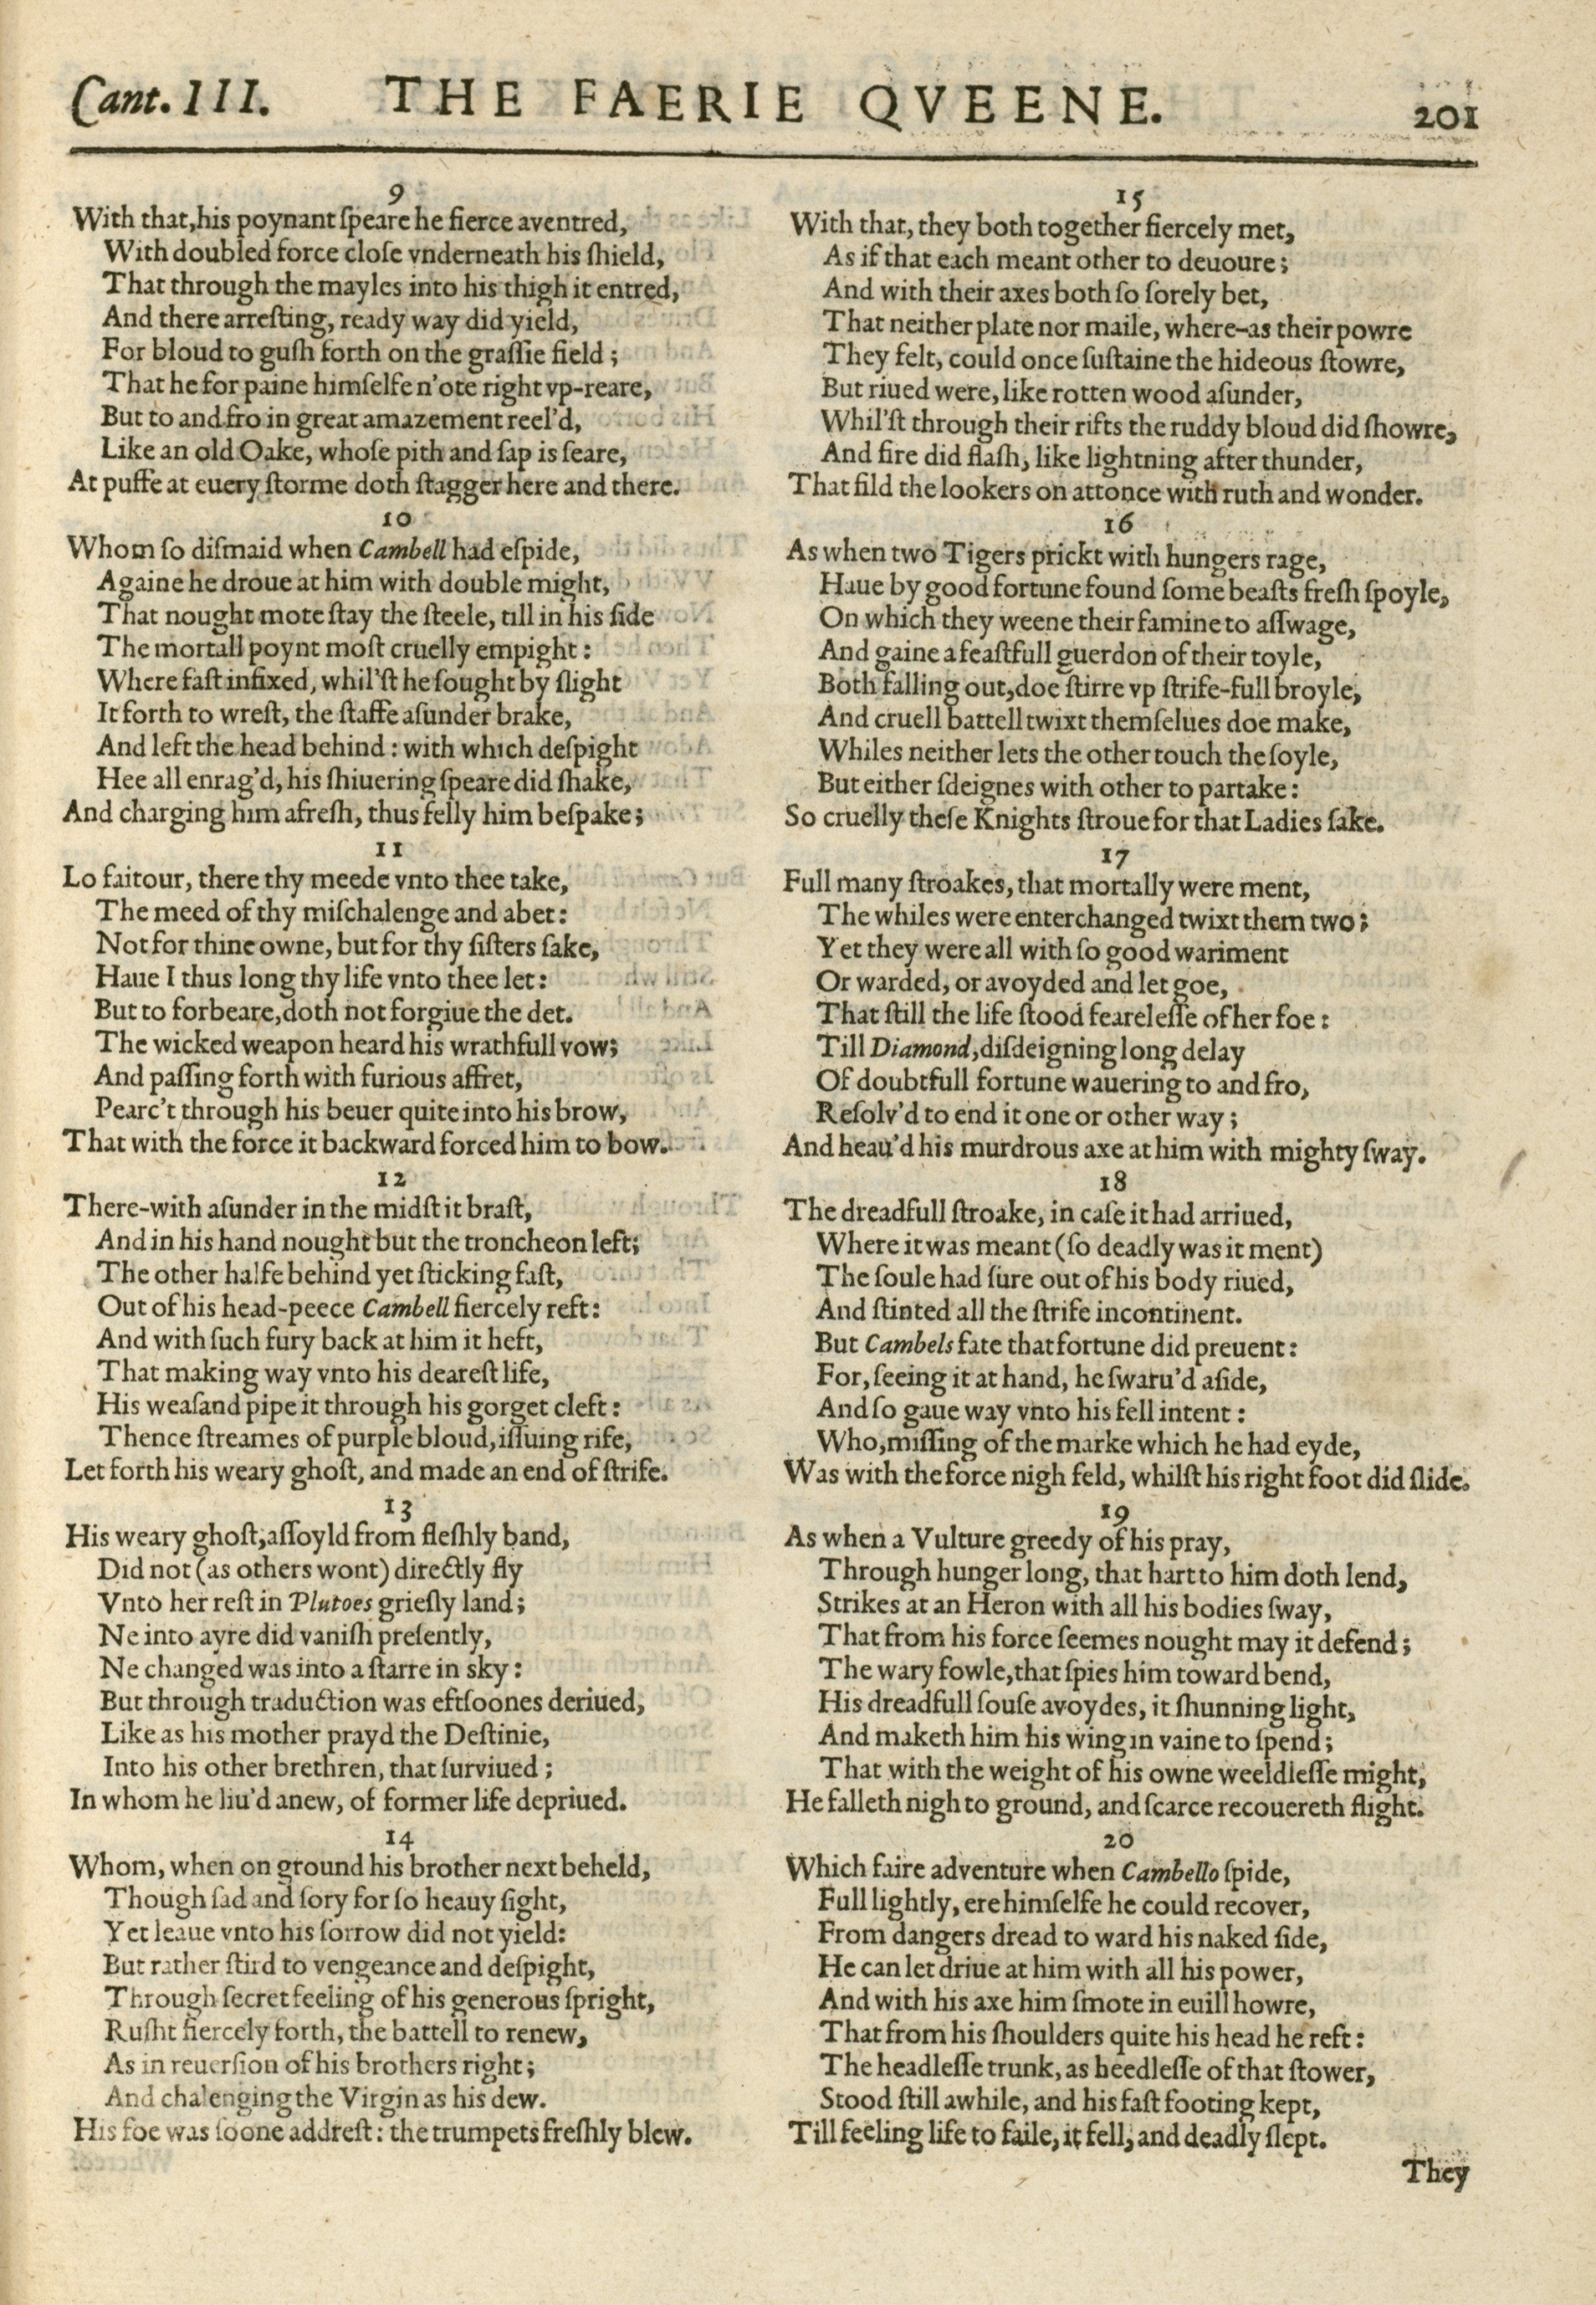 Cant. III.
THE FAERIE QVEENE.
201
9
With that, his poynant ſpeare he fierce aventred,
With doubled force cloſe vnderneath his ſhield,
That through the mayles into his thigh it entred,
And there arreſting, ready way did yield,
For bloud to guſh forth on the graſſie field;
That he for paine himſelfe n'ote right vp-reare,
But to and fro in great amazement reel'd,
Like an old Oake, whoſe pith and ſap is ſeare,
At puffe at euery ſtorme doth ſtagger here and there.
10
Whom ſo diſmaid when Cambell had eſpide,
Againe he droue at him with double might,
That nought mote ſtay the ſteele, till in his ſide
The mortall poynt moſt cruelly empight:
Where faſt infixed, whil'ſt he ſought by ſlight
It forth to wreſt, the ſtaffe aſunder brake,
And left the head behind: with which deſpight
Hee all enrag'd, his ſhiuering ſpeare did ſhake,
And charging him afreſh, thus felly him beſpake;
11
Lo faitour, there thy meede vnto thee take,
The meed of thy miſchalenge and abet:
Not for thine owne, but for thy ſiſters ſake,
Haue I thus long thy life vnto thee let:
But to forbeare, doth not forgiue the det.
The wicked weapon heard his wrathfull vow;
And paſſing forth with furious affret,
Pearc't through his beuer quite into his brow,
That with the force it backward forced him to bow.
12
There-with aſunder in the midſt it braſt,
And in his hand nought but the troncheon left;
The other halfe behind yet ſticking faſt,
Out of his head-peece Cambell fiercely reft:
And with ſuch fury back at him it heft,
That making way vnto his deareſt life,
His weaſand pipe it through his gorget cleft:
Thence ſtreames of purple bloud, iſſuing rife,
Let forth his weary ghoſt, and made an end of ſtrife.
13
His weary ghoſt, aſſoyld from fleſhly band,
Did not (as others wont) directly fly
Vnto her reſt in Plutoes grieſly land;
Ne into ayre did vaniſh preſently,
Ne changed was into a ſtarre in sky:
But through traduction was eftſoones deriued,
Like as his mother prayd the Deſtinie,
Into his other brethren, that ſuruiued;
In whom he liu'd anew, of former life depriued.
14
Whom, when on ground his brother next beheld,
Though ſad and ſory for ſo heauy ſight,
Yet leaue vnto his ſorrow did not yield:
But rather ſtird to vengeance and deſpight,
Through ſecret feeling of his generous ſpright,
Ruſht fiercely forth, the battell to renew,
As in reuerſion of his brothers right;
And chalenging the Virgin as his dew.
His foe was ſoone addreſt: the trumpets freſhly blew.
15
With that, they both together fiercely met,
As if that each meant other to deuoure;
And with their axes both ſo ſorely bet,
That neither plate nor maile, where-as their powre
They felt, could once ſuſtaine the hideous ſtowre,
But riued were, like rotten wood aſunder,
Whil'ſt through their rifts the ruddy bloud did ſhowre,
And fire did flaſh, like lightning after thunder,
That fild the lookers on attonce with ruth and wonder.
16
As when two Tigers prickt with hungers rage,
Haue by good fortune found ſome beaſts freſh ſpoyle,
On which they weene their famine to aſſwage,
And gaine a feaſtfull guerdon of their toyle,
Both falling out, doe ſtirre vp ſtrife-full broyle,
And cruell battell twixt themſelues doe make,
Whiles neither lets the other touch the ſoyle,
But either ſdeignes with other to partake:
So cruelly theſe Knights ſtroue for that Ladies ſake.
17
Full many ſtroakes, that mortally were ment,
The whiles were enterchanged twixt them two;
Yet they were all with ſo good wariment
Or warded, or avoyded and let goe,
That ſtill the life ſtood feareleſſe of her foe:
Till Diamond, diſdeigning long delay
Of doubtfull fortune wauering to and fro,
Reſolv'd to end it one or other way;
And heau'd his murdrous axe at him with mighty ſway.
18
The dreadfull ſtroake, in caſe it had arriued,
Where it was meant (ſo deadly was it ment)
The ſoule had ſure out of his body riued,
And ſtinted all the ſtrife incontinent.
But Cambels fate that fortune did preuent:
For, ſeeing it at hand, he ſwaru'd aſide,
And ſo gaue way vnto his fell intent:
Who, miſſing of the marke which he had eyde,
Was with the force nigh feld, whilſt his right foot did ſlide.
19
As when a Vulture greedy of his pray,
Through hunger long, that hart to him doth lend,
Strikes at an Heron with all his bodies ſway,
That from his force ſeemes nought may it defend;
The wary fowle, that ſpies him toward bend,
His dreadfull ſouſe avoydes, it ſhunning light,
And maketh him his wing in vaine to ſpend;
That with the weight of his owne weeldleſſe might,
He falleth nigh to ground, and ſcarce recouereth flight.
20
Which faire adventure when Cambello ſpide,
Full lightly, ere himſelfe he could recover,
From dangers dread to ward his naked ſide,
He can let driue at him with all his power,
And with his axe him ſmote in euill howre,
That from his ſhoulders quite his head he reft:
The headleſſe trunk, as heedleſſe of that ſtower,
Stood ſtill awhile, and his faſt footing kept,
Till feeling life to faile, it fell, and deadly ſlept.
They